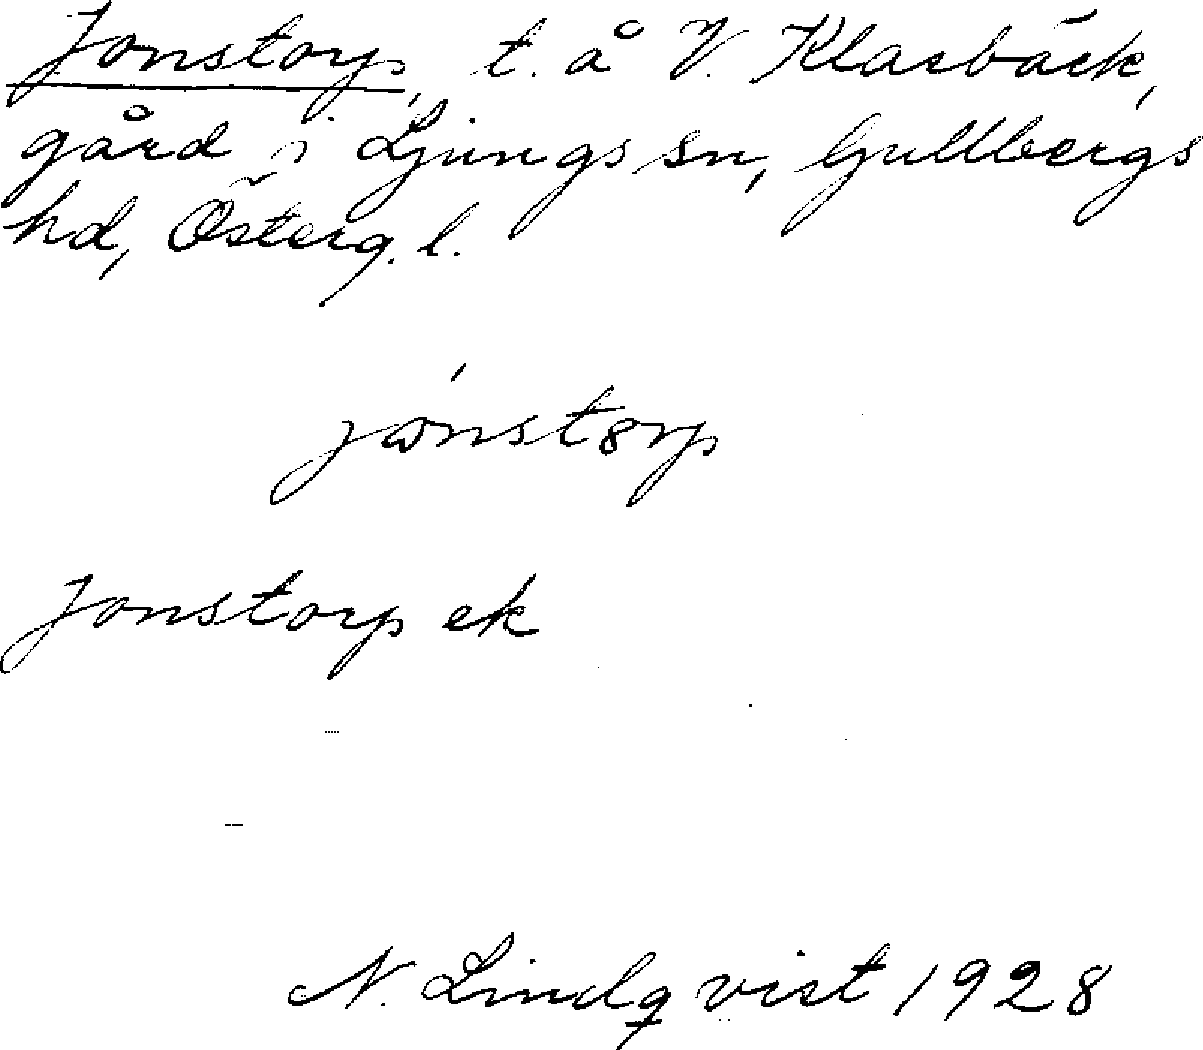 Jonstorp, t. å V. Klasbäck,
gård i Ljungs sn, Gullbergs
hd, Österg. l.
jónstorp
Jonstorp ek
N. Lindqvist 1928